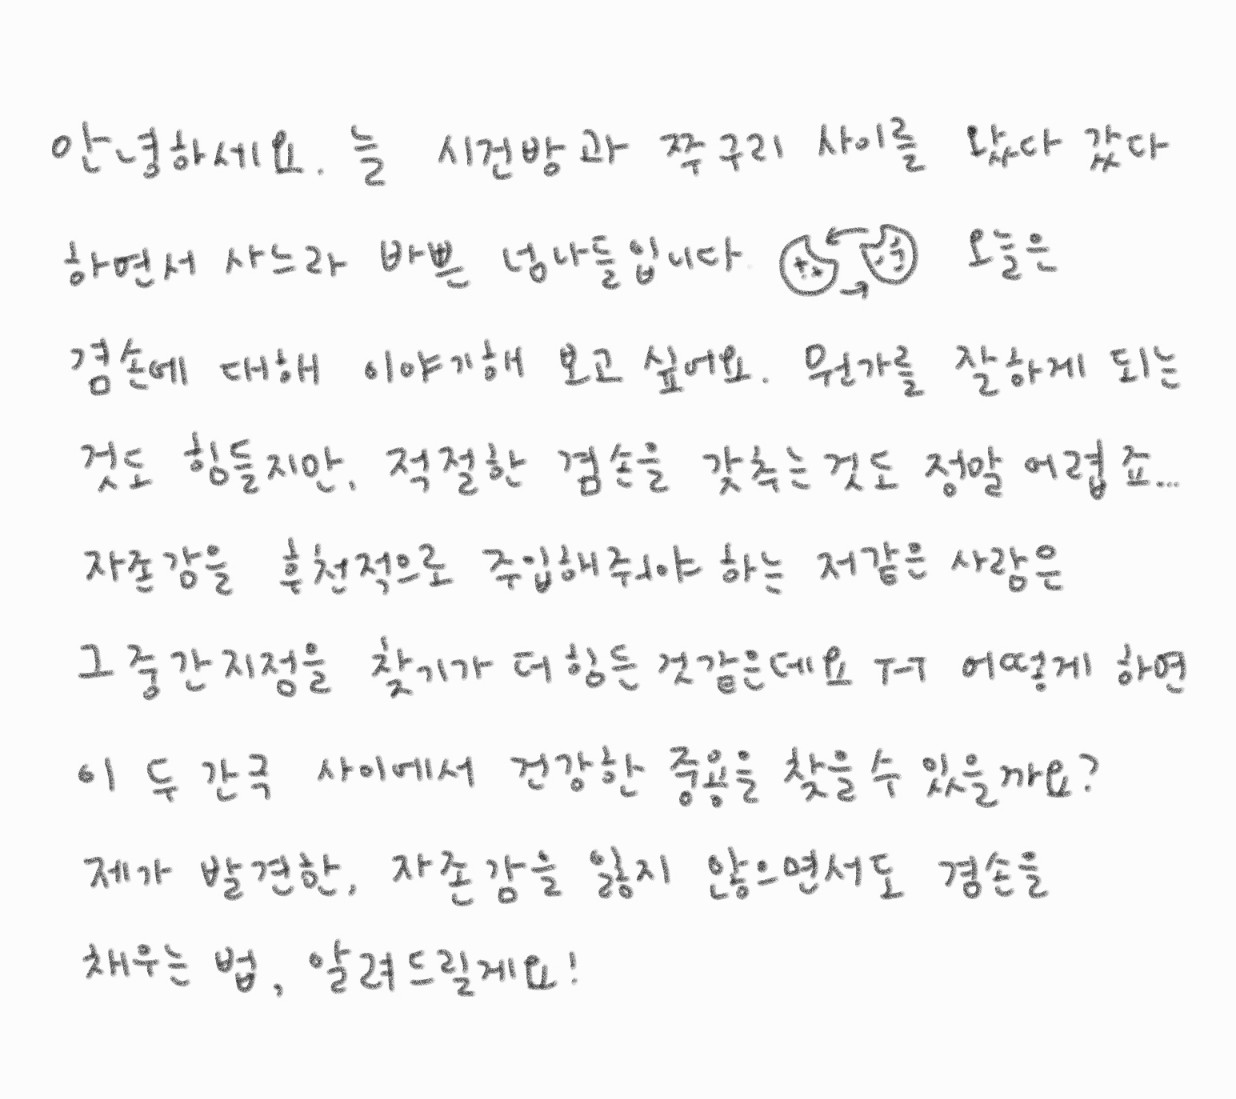 안녕하세요. 늘 시건방과 쭈구리 사이를 왔다 갔다
하면서 사느라 바쁜 넝나들입니다. 오늘은
겸손에 대해 이야기해 보고 싶어요. 뭔가를 잘하게 되는
것도 힘들지만, 적절한 겸손을 갖추는 것도 정말 어렵죠...
자존감을 후천적으로 주입해주어야 하는 저같은 사람은
그 중간지점을 찾기가 더 힘든 것같은데요 ㅜㅜ 어떻게 하면
이 두 간극 사이에서 건강한 중용을 찾을 수 있을까요?
제가 발견한, 자존감을 잃지 않으면서도 겸손을
채우는 법, 알려드릴게요!